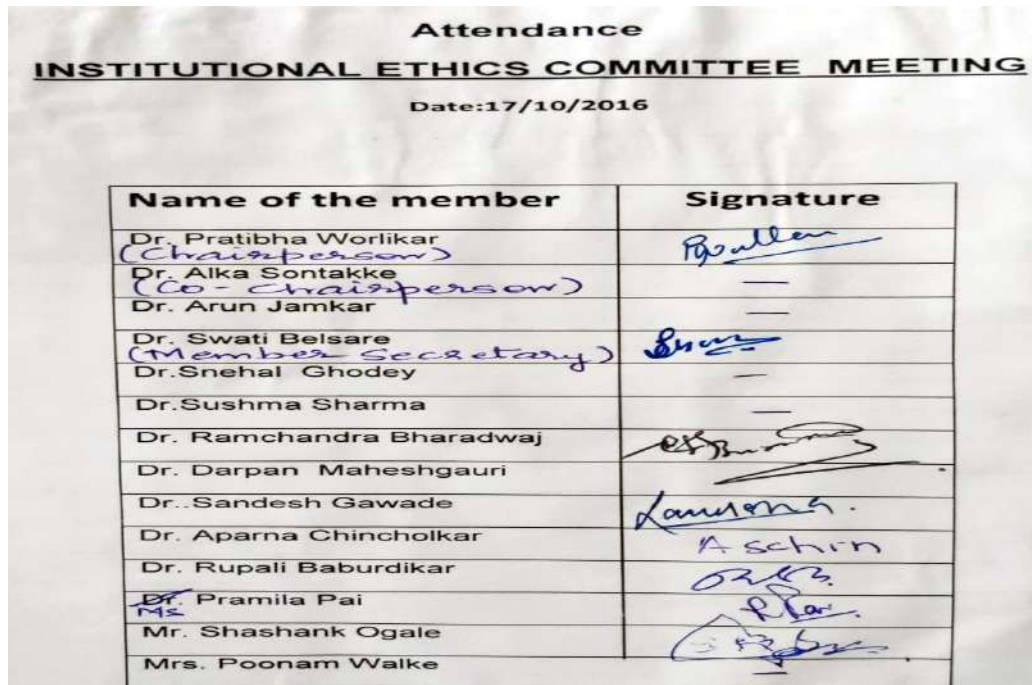 Attendance
INSTITUTIONAL ETHICS COMMITTEE MEETING
Date:17/10/2016
Name of the member Signature
Dr. Pratibha Worlikar
(Chairperson)
Dr. Alka Sontakke —
(Co-Chairperson)
Dr. Arun Jamkar —
Dr. Swati Belsare
(Member Secretary)
Dr.Snehal Ghodey —
Dr.Sushma Sharma —
Dr. Ramchandra Bharadwaj
Dr. Darpan Maheshgauri
Dr..Sandesh Gawade
Dr. Aparna Chincholkar
Dr. Rupali Baburdikar
Dr. Pramila Pai
Ms
Mr. Shashank Ogale
Mrs. Poonam Walke —